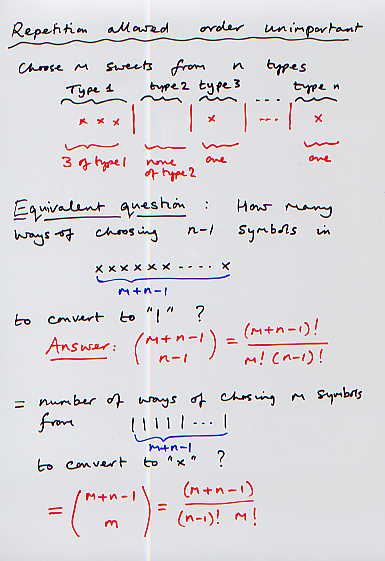 Repetition allowed order unimportant
Choose m sweets from n types
Type 1 type 2 type 3 .... type n
x x x | | x | ... | x
3 of type 1 none of type 2 one one
Equivalent question : How many
ways of choosing n-1 symbols in
x x x x x x x ..... x
m+n-1
to convert to "|" ?
Answer: (m+n-1 n-1) = (m+n-1)! / m! (n-1)!
= number of ways of chosing m symbols
from | | | | | ... |
m+n-1
to convert to "x" ?
= (m+n-1 m) = (m+n-1) / (n-1)! m!